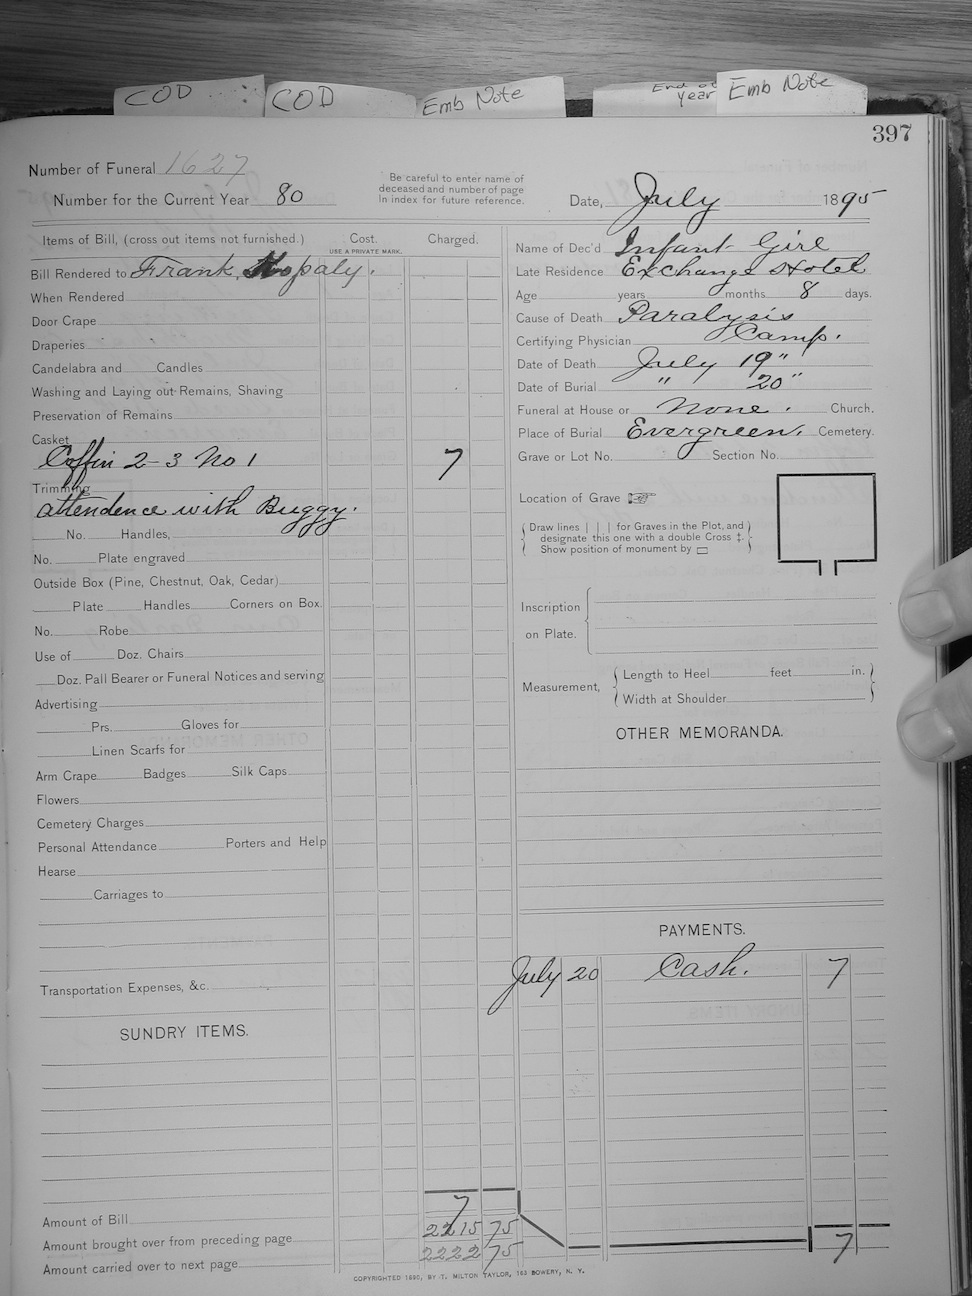 COD
COD
Emb Note
End of Year
Emb Note
397
Number of Funeral 1627
Number for the Current Year 80
Be careful to enter name of
deceased and number of page
In index for future reference.
Date, July 1895
Items of Bill, (cross out items not furnished.)
Cost.
USE A PRIVATE MARK.
Charged.
Bill Rendered to Frank,
When Rendered
Door Crape
Draperies
Candelabra and Candles
Washing and Laying out Remains, Shaving
Preservation of Remains
Casket
Coffin 2-3 No 1 7
Trimming
attendence with Buggy.
No. Handles,
No. Plate engraved
Outside Box (Pine, Chestnut, Oak, Cedar)
Plate Handles Corners on Box.
No. Robe
Use of Doz. Chairs
Doz. Pall Bearer or Funeral Notices and serving
Advertising
Prs. Gloves for
Linen Scarfs for
Arm Crape Badges Silk Caps
Flowers
Cemetery Charges
Personal Attendance Porters and Help
Hearse
Carriages to
Transportation Expenses, &c.
SUNDRY ITEMS.
Amount of Bill 7
Amount brought over from preceding page 2215 75
Amount carried over to next page 2222 75
Name of Dec'd Infant Girl
Late Residence Exchange Hotel
Age years months 8 days.
Cause of Death Paralysis
Certifying Physician Camp.
Date of Death July 19"
Date of Burial " 20"
Funeral at House or None. Church.
Place of Burial Evergreen. Cemetery.
Grave or Lot No. Section No.
Location of Grave
Draw lines | | | for Graves in the Plot, and
designate this one with a double Cross ‡.
Show position of monument by
Inscription
on Plate.
Measurement,
Length to Heel feet in.
Width at Shoulder
OTHER MEMORANDA.
PAYMENTS.
July 20 Cash. 7
7
COPYRIGHTED 1890, BY T. MILTON TAYLOR, 163 BOWERY, N. Y.